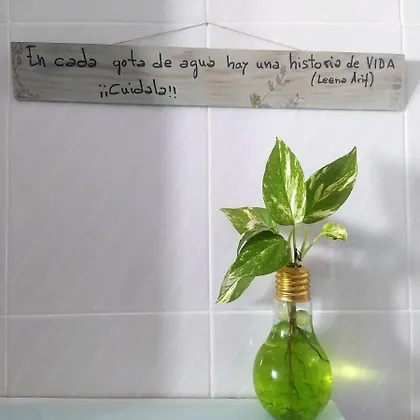 En cada gota de agua hay una historia de VIDA
(Leena Arif)
¡¡Cuidala!!